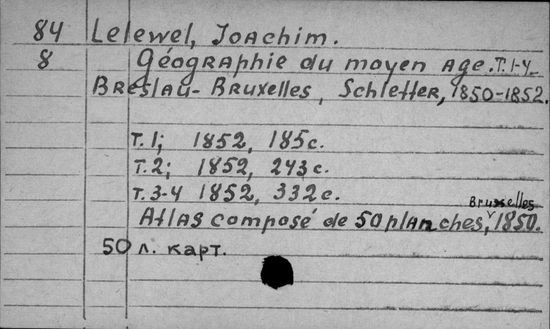 84 Lelewel, Joachim.
8 Géographie du moyen age. T. 1-4
Breslau-Bruxelles, Schletter, 1850-1852.
T. 1; 1852, 185 c.
T. 2; 1852, 243 c.
T. 3-4 1852, 332 c.
Brusselles
Atlas composé de 50 planches, 1850.
50 л. карт.